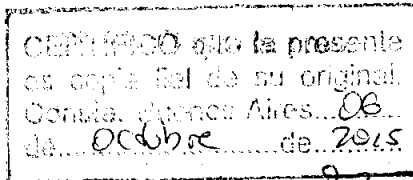 CERTIFICO que la presente
es copia fiel de su original.
Buenos Aires...06
de...Octubre...de...2015